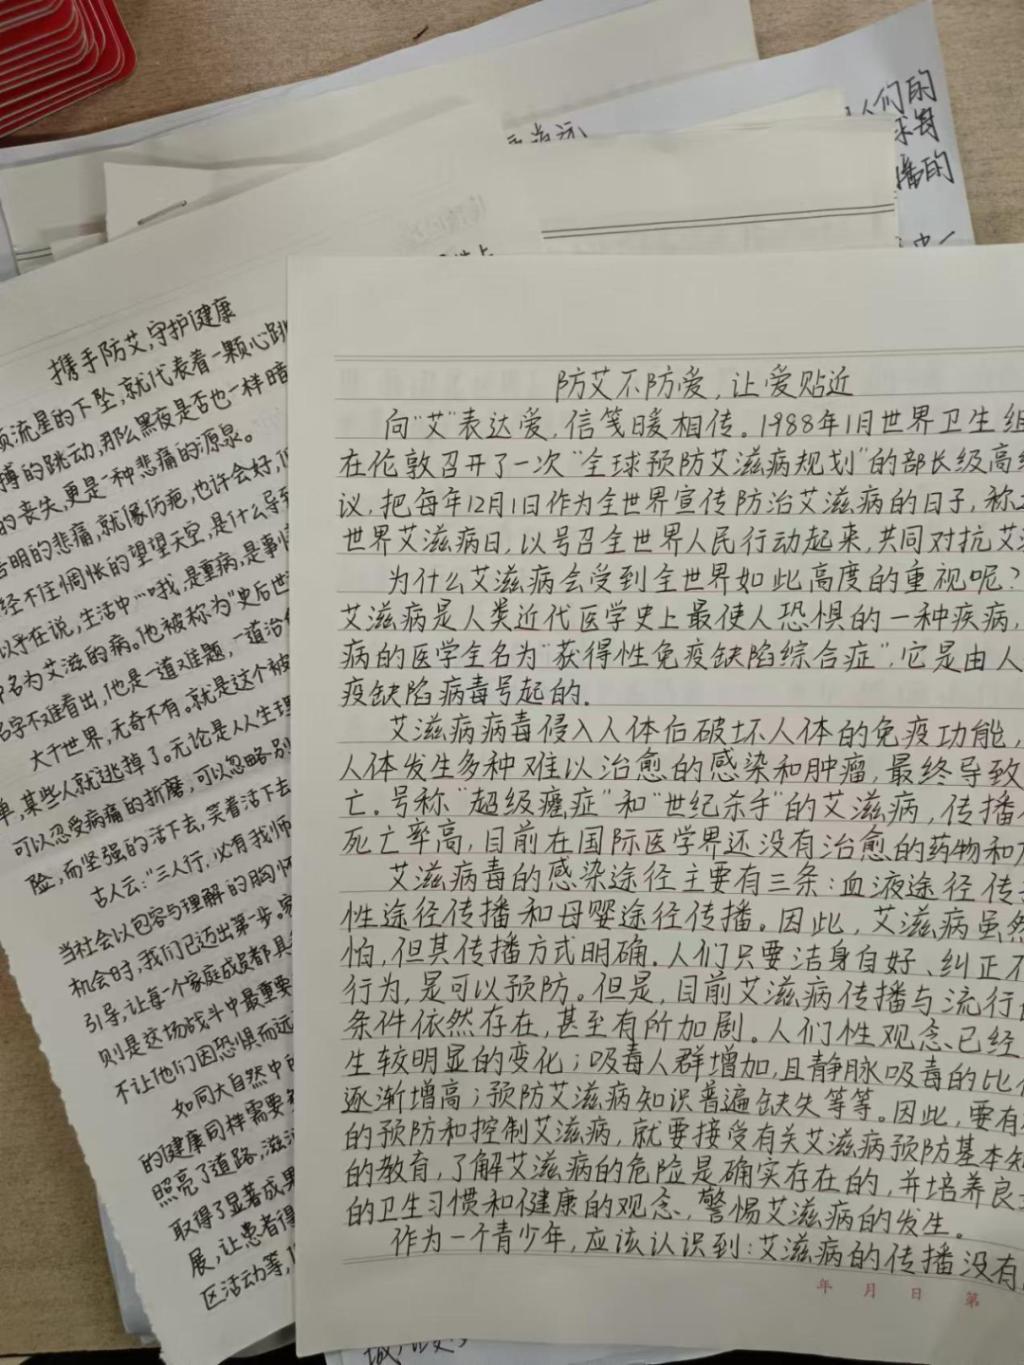 人们的
播的
携手防艾,守护健康
流星的下坠,就代表着一颗心跳
搏的跳动,那么黑夜是否也一样暗
的丧失,更是一种悲痛的源泉。
明的悲痛,就像伤疤,也许会好,但
经不住惆怅的望望天空,是什么导致
以乎在说,生活中…哦,是重病,是事情
名为艾滋的病。他被称为"史后世
名字不难看出,他是一道难题,一道治
大千世界,无奇不有。就是这个被
单,某些人就逃掉了。无论是人人生理
可以忍受病痛的折磨;可以忽略别
险,而坚强的活下去,笑着活下去
古人云:"三人行,必有我师
当社会以包容与理解的胸怀
机会时,我们已迈出第一步。家
引导,让每一个家庭成员都具
则是这场战斗中最重要
不让他们因恐惧而远
如同大自然中的
的健康同样需要
照亮了道路,滋
取得了显著成果
展,让患者得
区活动等,
防艾不防爱,让爱贴近
向"艾"表达爱,信笺暖相传。1988年1月世界卫生组
在伦敦召开了一次"全球预防艾滋病规划"的部长级高级
议,把每年12月1日作为全世界宣传防治艾滋病的日子,称
世界艾滋病日,以号召全世界人民行动起来,共同对抗艾
为什么艾滋病会受到全世界如此高度的重视呢?
艾滋病是人类近代医学史上最使人恐惧的一种疾病,
病的医学全名为"获得性免疫缺陷综合症",它是由人
疫缺陷病毒号起的.
艾滋病病毒侵入人体后破坏人体的免疫功能,
人体发生多种难以治愈的感染和肿瘤,最终导致
亡.号称"超级癌症"和"世纪杀手"的艾滋病,传播
死亡率高,目前在国际医学界还没有治愈的药物和
艾滋病毒的感染途径主要有三条:血液途径传
性途径传播和母婴途径传播。因此,艾滋病虽然
怕,但其传播方式明确.人们只要洁身自好、纠正不
行为,是可以预防。但是,目前艾滋病传播与流行
条件依然存在,甚至有所加剧。人们性观念已经
生较明显的变化;吸毒人群增加,且静脉吸毒的比
逐渐增高;预防艾滋病知识普遍缺失等等。因此,要有
的预防和控制艾滋病,就要接受有关艾滋病预防基本知
的教育,了解艾滋病的危险是确实存在的,并培养良
的卫生习惯和健康的观念,警惕艾滋病的发生。
作为一个青少年,应该认识到:艾滋病的传播没有
年 月 日 第